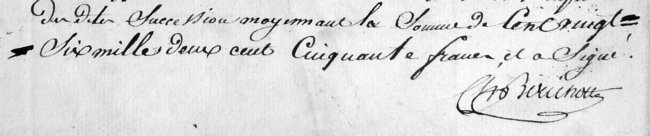 des dites Succession moyennant la Somme de Cent vingt=
=Six mille deux cent Cinquante francs, et a Signé.